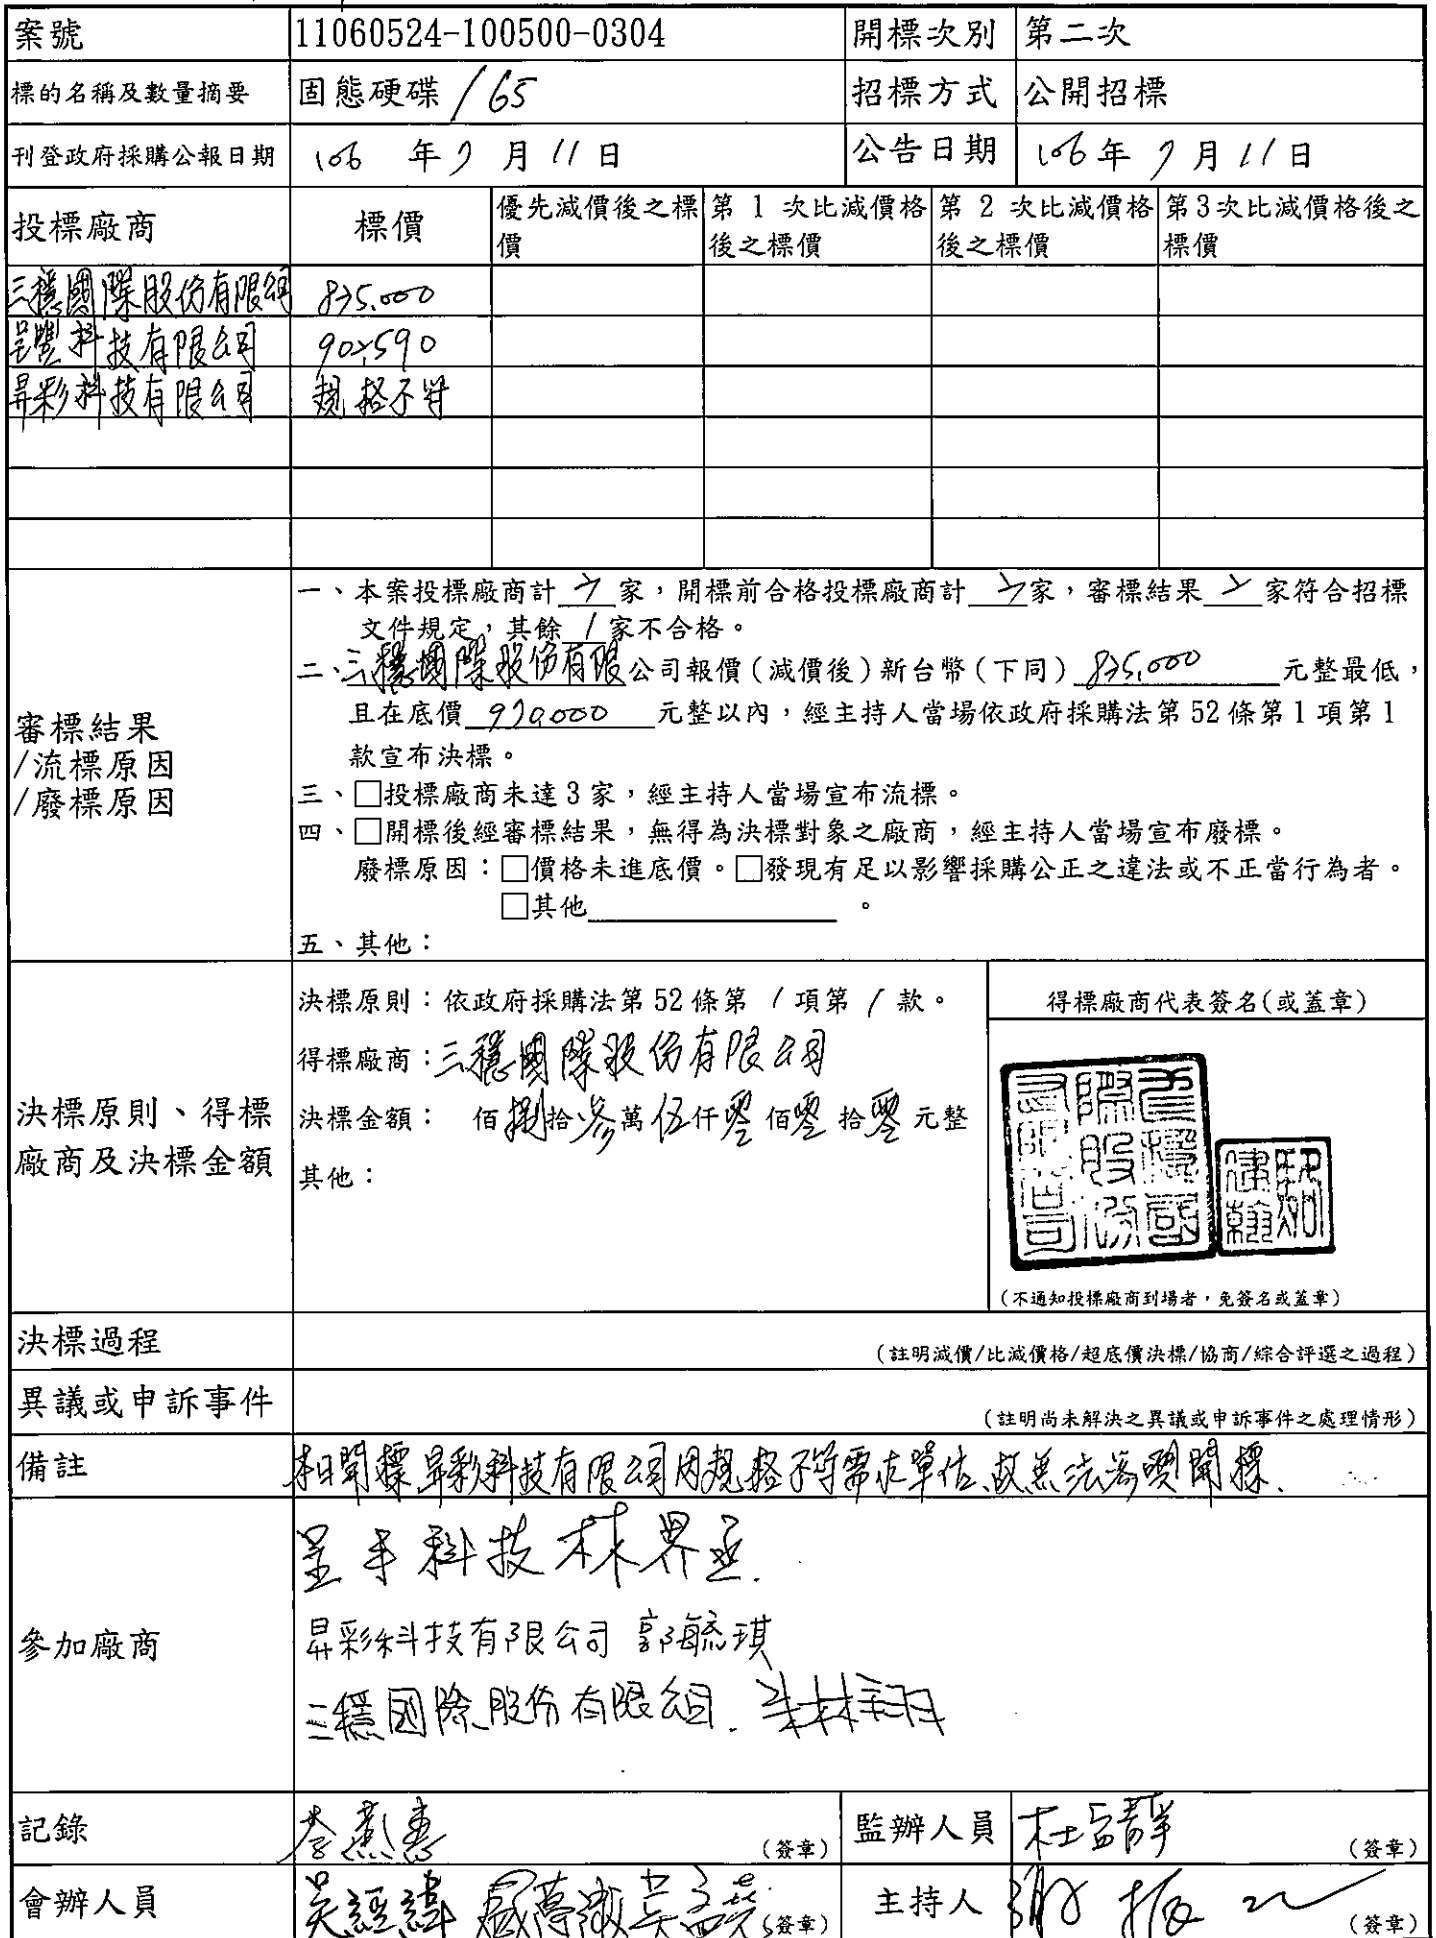 案號 11060524-100500-0304 開標次別 第二次
標的名稱及數量摘要 固態硬碟/65 招標方式 公開招標
刊登政府採購公報日期 106 年 7 月 11 日 公告日期 106年 7 月 11 日
投標廠商 標價 優先減價後之標價 第 1 次比減價格後之標價 第 2 次比減價格後之標價 第3次比減價格後之標價
三穩國際股份有限公司 835,000
呈豐科技有限公司 902,590
昇彩科技有限公司 規格不符
審標結果
/流標原因
/廢標原因
一、本案投標廠商計 3 家,開標前合格投標廠商計 3 家,審標結果 2 家符合招標
文件規定,其餘 1 家不合格。
二、三穩國際股份有限公司報價(減價後)新台幣(下同) 835,000 元整最低,
且在底價 920,000 元整以內,經主持人當場依政府採購法第 52 條第 1 項第 1
款宣布決標。
三、□投標廠商未達 3 家,經主持人當場宣布流標。
四、□開標後經審標結果,無得為決標對象之廠商,經主持人當場宣布廢標。
廢標原因:□價格未進底價。□發現有足以影響採購公正之違法或不正當行為者。
□其他 。
五、其他:
決標原則、得標
廠商及決標金額
決標原則:依政府採購法第 52 條第 1 項第 1 款。
得標廠商:三穩國際股份有限公司
決標金額: 佰捌拾參萬伍仟零佰零拾零元整
其他:
得標廠商代表簽名(或蓋章)
三穩國際股份有限公司
(不通知投標廠商到場者,免簽名或蓋章)
決標過程 (註明減價/比減價格/超底價決標/協商/綜合評選之過程)
異議或申訴事件 (註明尚未解決之異議或申訴事件之處理情形)
備註 本日開標昇彩科技有限公司因規格不符需求單位,故無法為現開標.
參加廠商
呈丰科技 林界丞.
昇彩科技有限公司 郭毓琪
三穩國際股份有限公司.
記錄 (簽章) 監辦人員 (簽章)
會辦人員 吳經緯 (簽章) 主持人 (簽章)